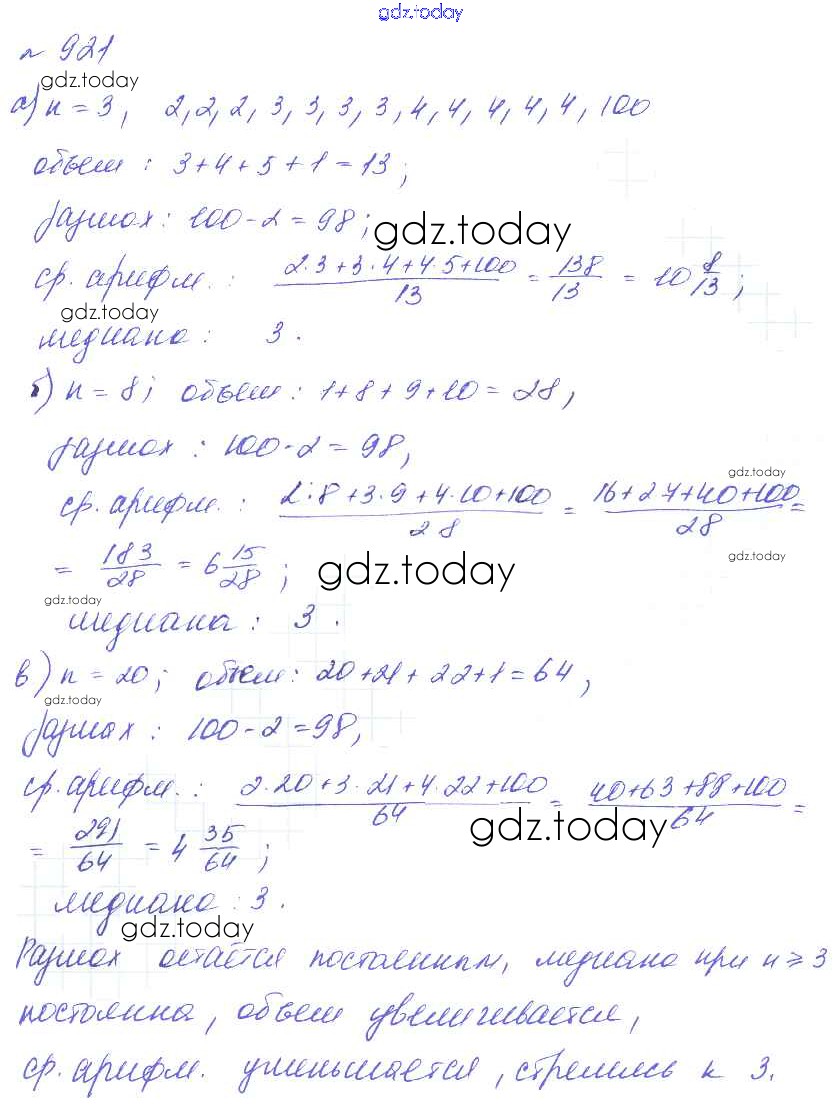 gdz.today
№ 921
gdz.today
а) n = 3, 2, 2, 2, 3, 3, 3, 3, 4, 4, 4, 4, 4, 100
объем : 3+4+5+1=13;
размах: 100-2=98;
gdz.today
ср. арифм. : (2·3+3·4+4·5+100)/13 = 138/13 = 10 8/13;
gdz.today
медиана : 3.
б) n = 8; объем : 1+8+9+10=28,
размах : 100-2=98,
gdz.today
ср. арифм. : (2·8+3·9+4·10+100)/28 = (16+27+40+100)/28 =
= 183/28 = 6 15/28;
gdz.today
gdz.today
gdz.today
медиана : 3.
в) n = 20; объем: 20+21+22+1=64,
gdz.today
размах : 100-2=98,
ср. арифм. : (2·20+3·21+4·22+100)/64 = (40+63+88+100)/64 =
gdz.today
= 291/64 = 4 35/64;
медиана : 3.
gdz.today
Размах остаётся постоянным, медиана при n ≥ 3
постоянна, объем увеличивается,
ср. арифм. уменьшается, стремясь к 3.